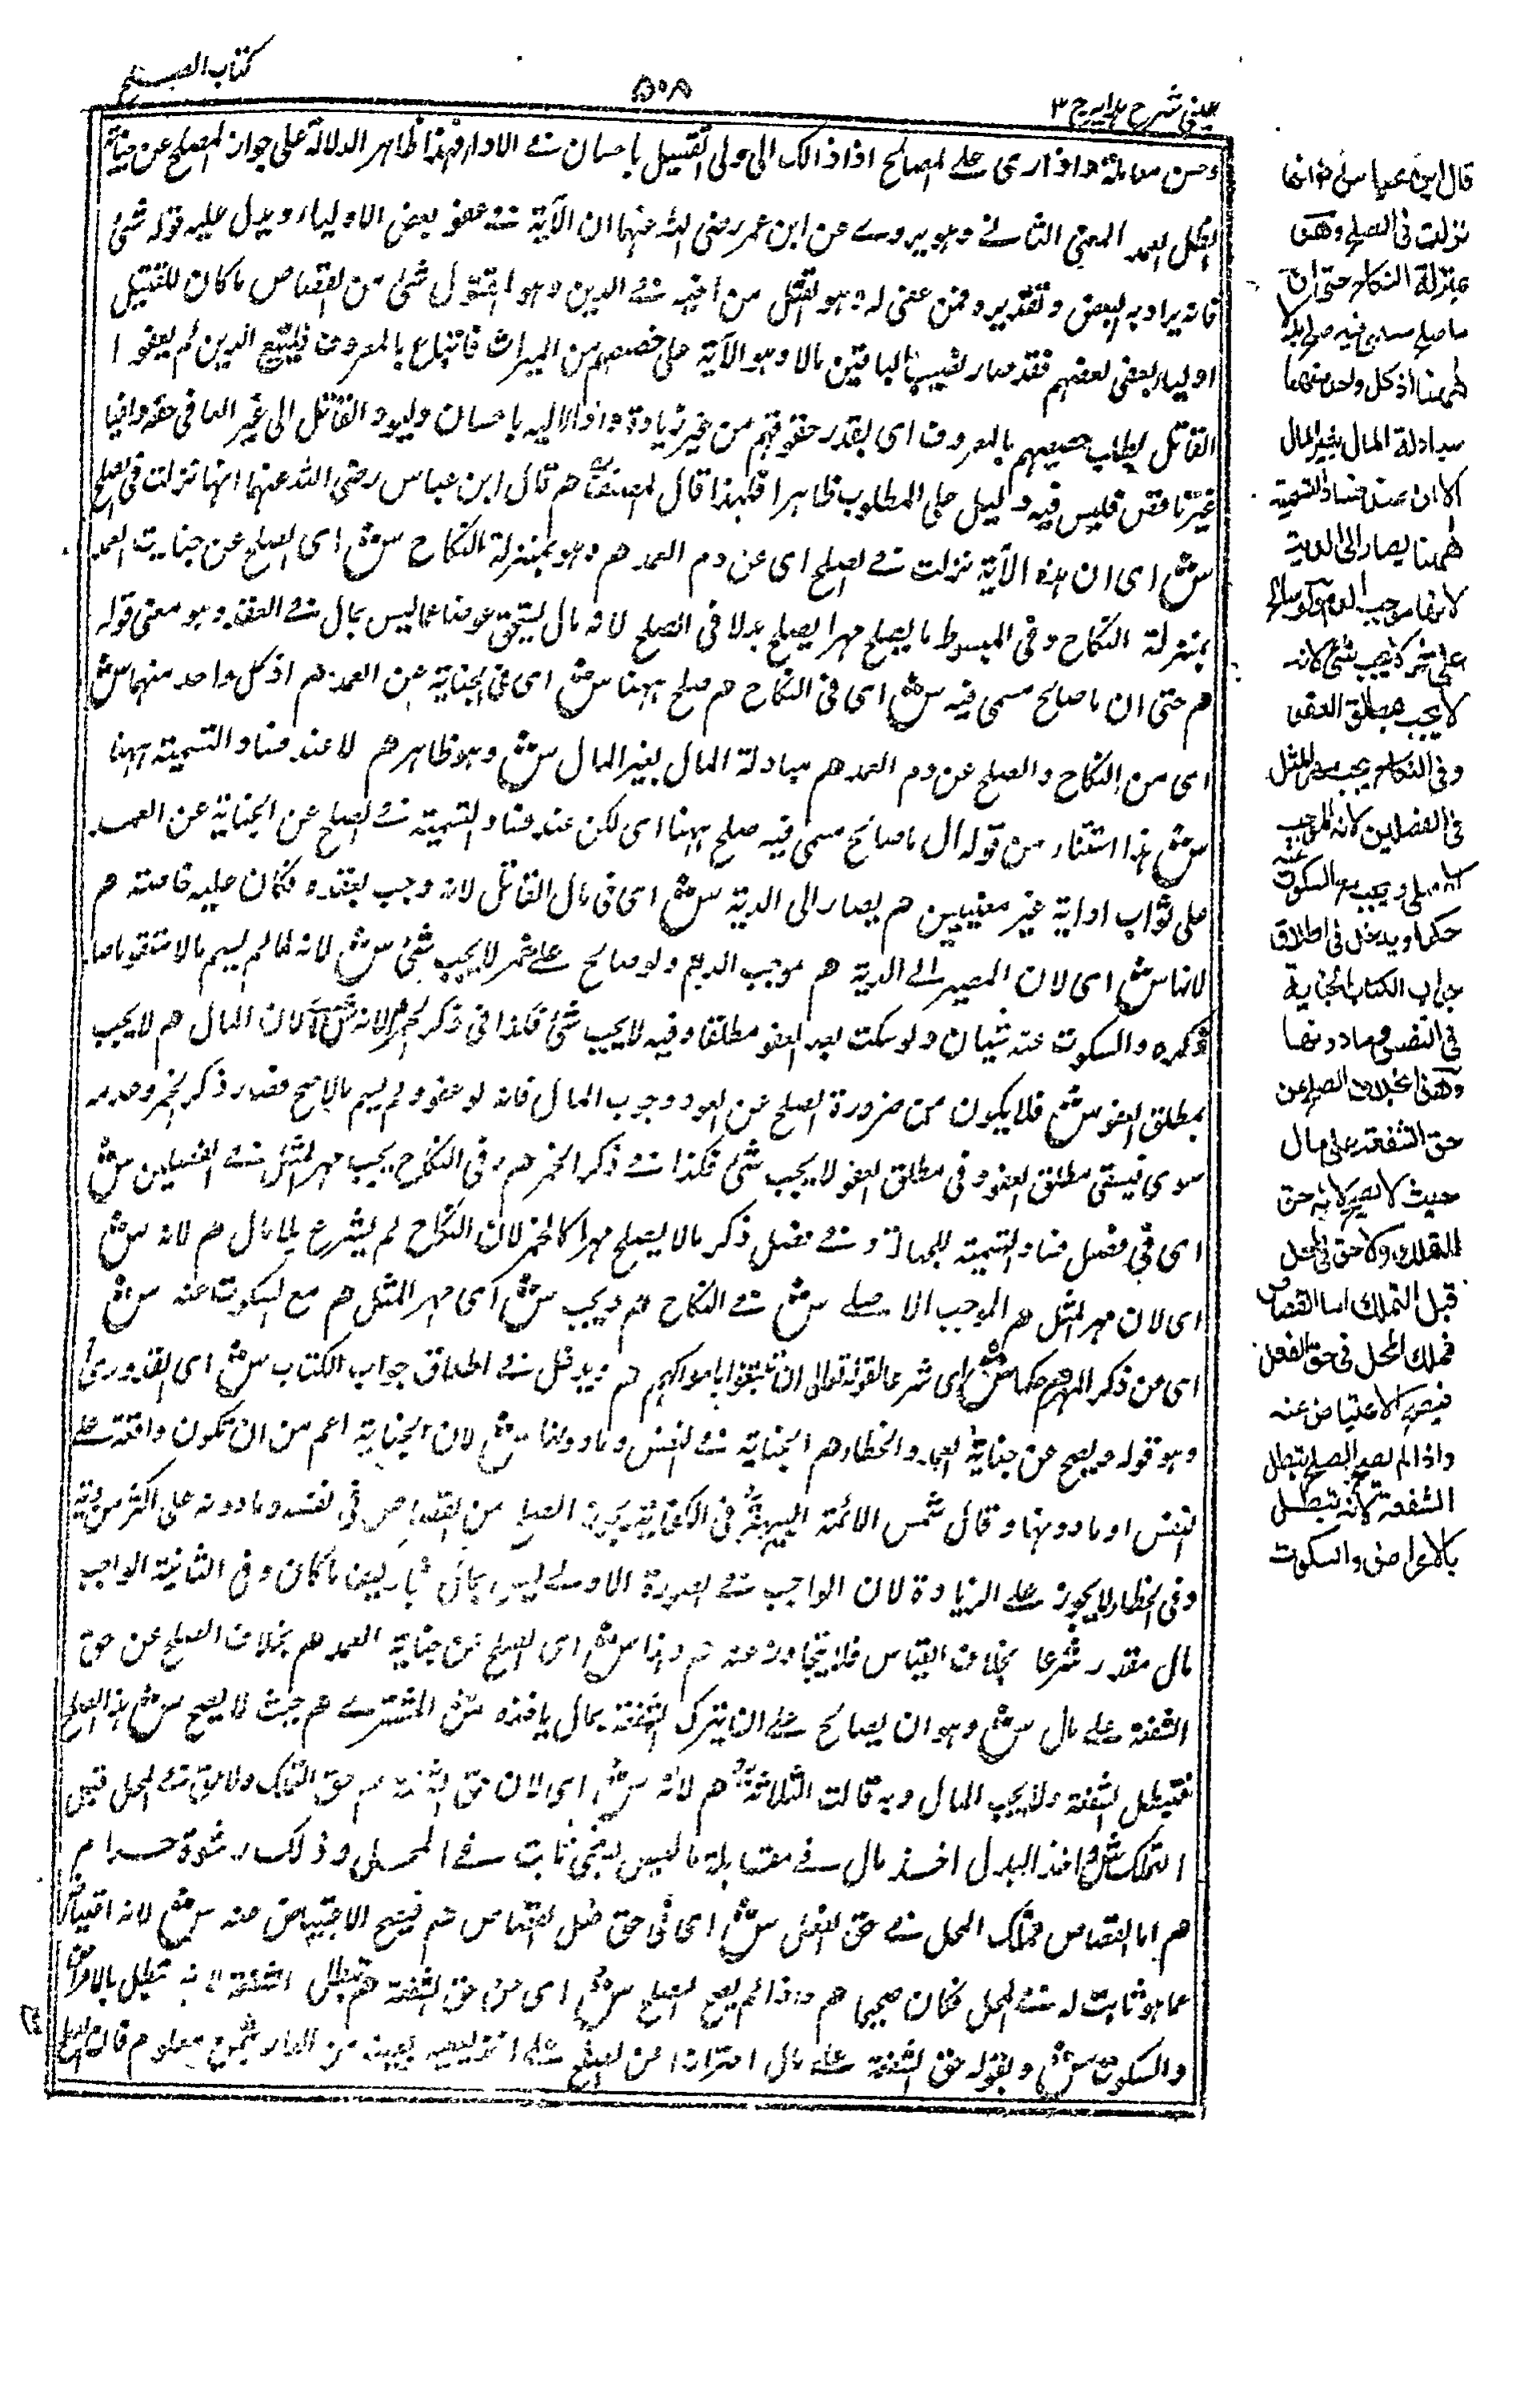 عینی شرح ہدایہ ج ۳
۵۰۸
کتاب الصلح
وحسن معاملة واذا ری علے المصالح اذا ذالک الی ولی القتیل باحسان فے الاداء فهذا ظاهر الدلالة علی جواز الصلح عن جنایة
القتل العمد المعنی الثانے وہو یروے عن ابن عمر رضی اللہ عنہما ان الآیة فے عفو بعض الاولیاء ویدل علیہ قولہ شئ
فانہ یراد بہ البعض وتقدیرہ فمن عفی لہ وہو القتل من اخیہ فے الدین وہو المقتول شئ من القصاص ما کان للقتیل
اولیاء بعفی بعضہم فقد صار نصیب الباقین مالا وہو الآیة علی حصصہم من المیراث فاتباع بالمعروف فلیتبع الذین لم یعفوا
القاتل بطلب حصصہم بالمعروف ای بقدر حقوقہم من غیر زیادة واداء الیہ باحسان ولیود القاتل الی غیر العافی حقہ وافیا
غیر ناقص فلیس فیہ دلیل علی المطلوب ظاہرا فلہذا قال المصنف هم قال ابن عباس رضی اللہ عنہما انہا نزلت فی الصلح
ش ای ان ہذہ الآیة نزلت فے الصلح ای عن دم العمد هم وہو بمنزلة النکاح ش ای الصلح عن جنایت العمد
بمنزلة النکاح وفی المبسوط ما یصلح مہرا یصلح بدلا فی الصلح لانہ مال یستحق عوضا عما لیس بمال فے العقد وہو معنی قولہ
هم حتی ان ما صالح مسمی فیہ ش ای فی النکاح هم صلح ہہنا ش ای فی الجنایة عن العمد هم اذ کل واحد منہما ش
ای من النکاح والصلح عن دم العمد هم مبادلة المال بغیر المال ش وہو ظاہر هم الا عند فساد التسمیة ہہنا
ش ہذا استثناء من قولہ ان ما صالح مسمی فیہ صلح ہہنا ای لکن عند فساد التسمیة فے الصلح عن الجنایة عن العمد
علی ثواب او دابة غیر معنیین هم یصار الی الدیة ش ای فی مال القاتل لانہ وجب بعقدہ فکان علیہ خاصتہ هم
لانہا ش ای لان المصیر الے الدیة هم موجب الدم ولو صالح علے خمر لا یجب شئ ش لانہ لما لم یسم مالا متقوما صار
ذکرہ والسکوت عنہ شیان ولو سکت بعد العفو مطلقا وفیہ لا یجب شئ فکذا فی ذکر الخمر هم لانہ ش ای لان المال هم لا یجب
بمطلق العفو ش فلا یکون من ضرورة الصلح عن العود وجوب المال فانہ لو عفو ولم یسم مالا صح فصار ذکر الخمر وعدمہ
سوی فیبقی مطلق العفو وفی مطلق العفو لا یجب شئ فکذا فے ذکر الخمر هم وفی النکاح یجب مہر المثل فے الفصلین ش
ای فی فصل فساد التسمیة للجہالة وفے فصل ذکر مالا یصلح مہرا کالخمر لان النکاح لم یشرع بلا مال هم لانہ ش
ای لان مہر المثل هم الموجب الاصلے ش فے النکاح هم ویجب ش ای مہر المثل هم مع السکوت عنہ ش
ای عن ذکر المہر هم حکما ش ای شرعا لقولہ تعالی ان تبتغوا باموالکم هم ویدخل فے اطلاق جواب الکتاب ش ای القدوری
وہو قولہ ویصح عن جنایة العمد والخطاء هم الجنایة فے النفس وما دونہا ش لان الجنایة اعم من ان تکون واقعة علے
النفس او ما دونہا وقال شمس الائمة البیہقی فی الکفایة یجوز الصلح من القصاص فی نفسہ وما دونہ علی اکثر من دیتہ
وفی الخطاء لا یجوز علے الزیادة لان الواجب فے الصورة الاولے لیس بمال کان وفی الثانیة الواجب
مال مقدر شرعا بخلاف القیاس فلا یتجاوز عنہ هم وہذا ش ای الصلح عن جنایة العمد هم بخلاف الصلح عن حق
الشفعة علے مال ش وہو ان یصالح علے ان یترک الشفعة بمال یاخذہ من المشترے هم حیث لا یصح ش ہذا الصلح
فتبطل الشفعة ولا یجب المال وبہ قالت الثلاثة هم لانہ ش ای لان حق الشفعة هم حق التملک ولا حق فے المحل قبل
التملک ش واخذ البدل اخذ مال فے مقابلة ما لیس بشئ ثابت فے المحل وذلک رشوة حرام
هم اما القصاص فملک المحل فے حق الفعل ش ای فی حق فعل القصاص هم فیصح الاعتیاض عنہ ش لانہ اعتیاض
عما ہو ثابت لہ فے المحل فکان صحیحا هم واذا لم یصح الصلح ش ای عن حق الشفعة هم تبطل الشفعة لانہ تبطل بالاعراض
والسکوت ش وبقولہ حق الشفعة علے مال احترازا عن الصلح علے اخذ بعینہ من الدار بثمن معلوم فان الصلح
قال ابن عباس رض انها
نزلت فی الصلح وهو
بمنزلة النکاح حتی ان
ما صلح مسمی فیہ صلح بدلا
ههنا اذ کل واحد منهما
مبادلة المال بغیر المال
الا ان عند فساد التسمیة
ههنا یصار الی الدیة
لانها موجب الدم ولو صالح
علی خمر لا یجب شئ لانه
لا یجب بمطلق العفو
وفی النکاح یجب مهر المثل
فی الفصلین لانه الموجب
الاصلی ویجب مع السکوت عنه
حکما ویدخل فی اطلاق
جواب الکتاب الجنایة
فی النفس وما دونها
وهذا بخلاف الصلح عن
حق الشفعة علی مال
حیث لا یصح لانه حق
التملک ولا حق فی المحل
قبل التملک اما القصاص
فملک المحل فی حق الفعل
فیصح الاعتیاض عنه
واذا لم یصح الصلح تبطل
الشفعة لانه تبطل
بالاعراض والسکوت